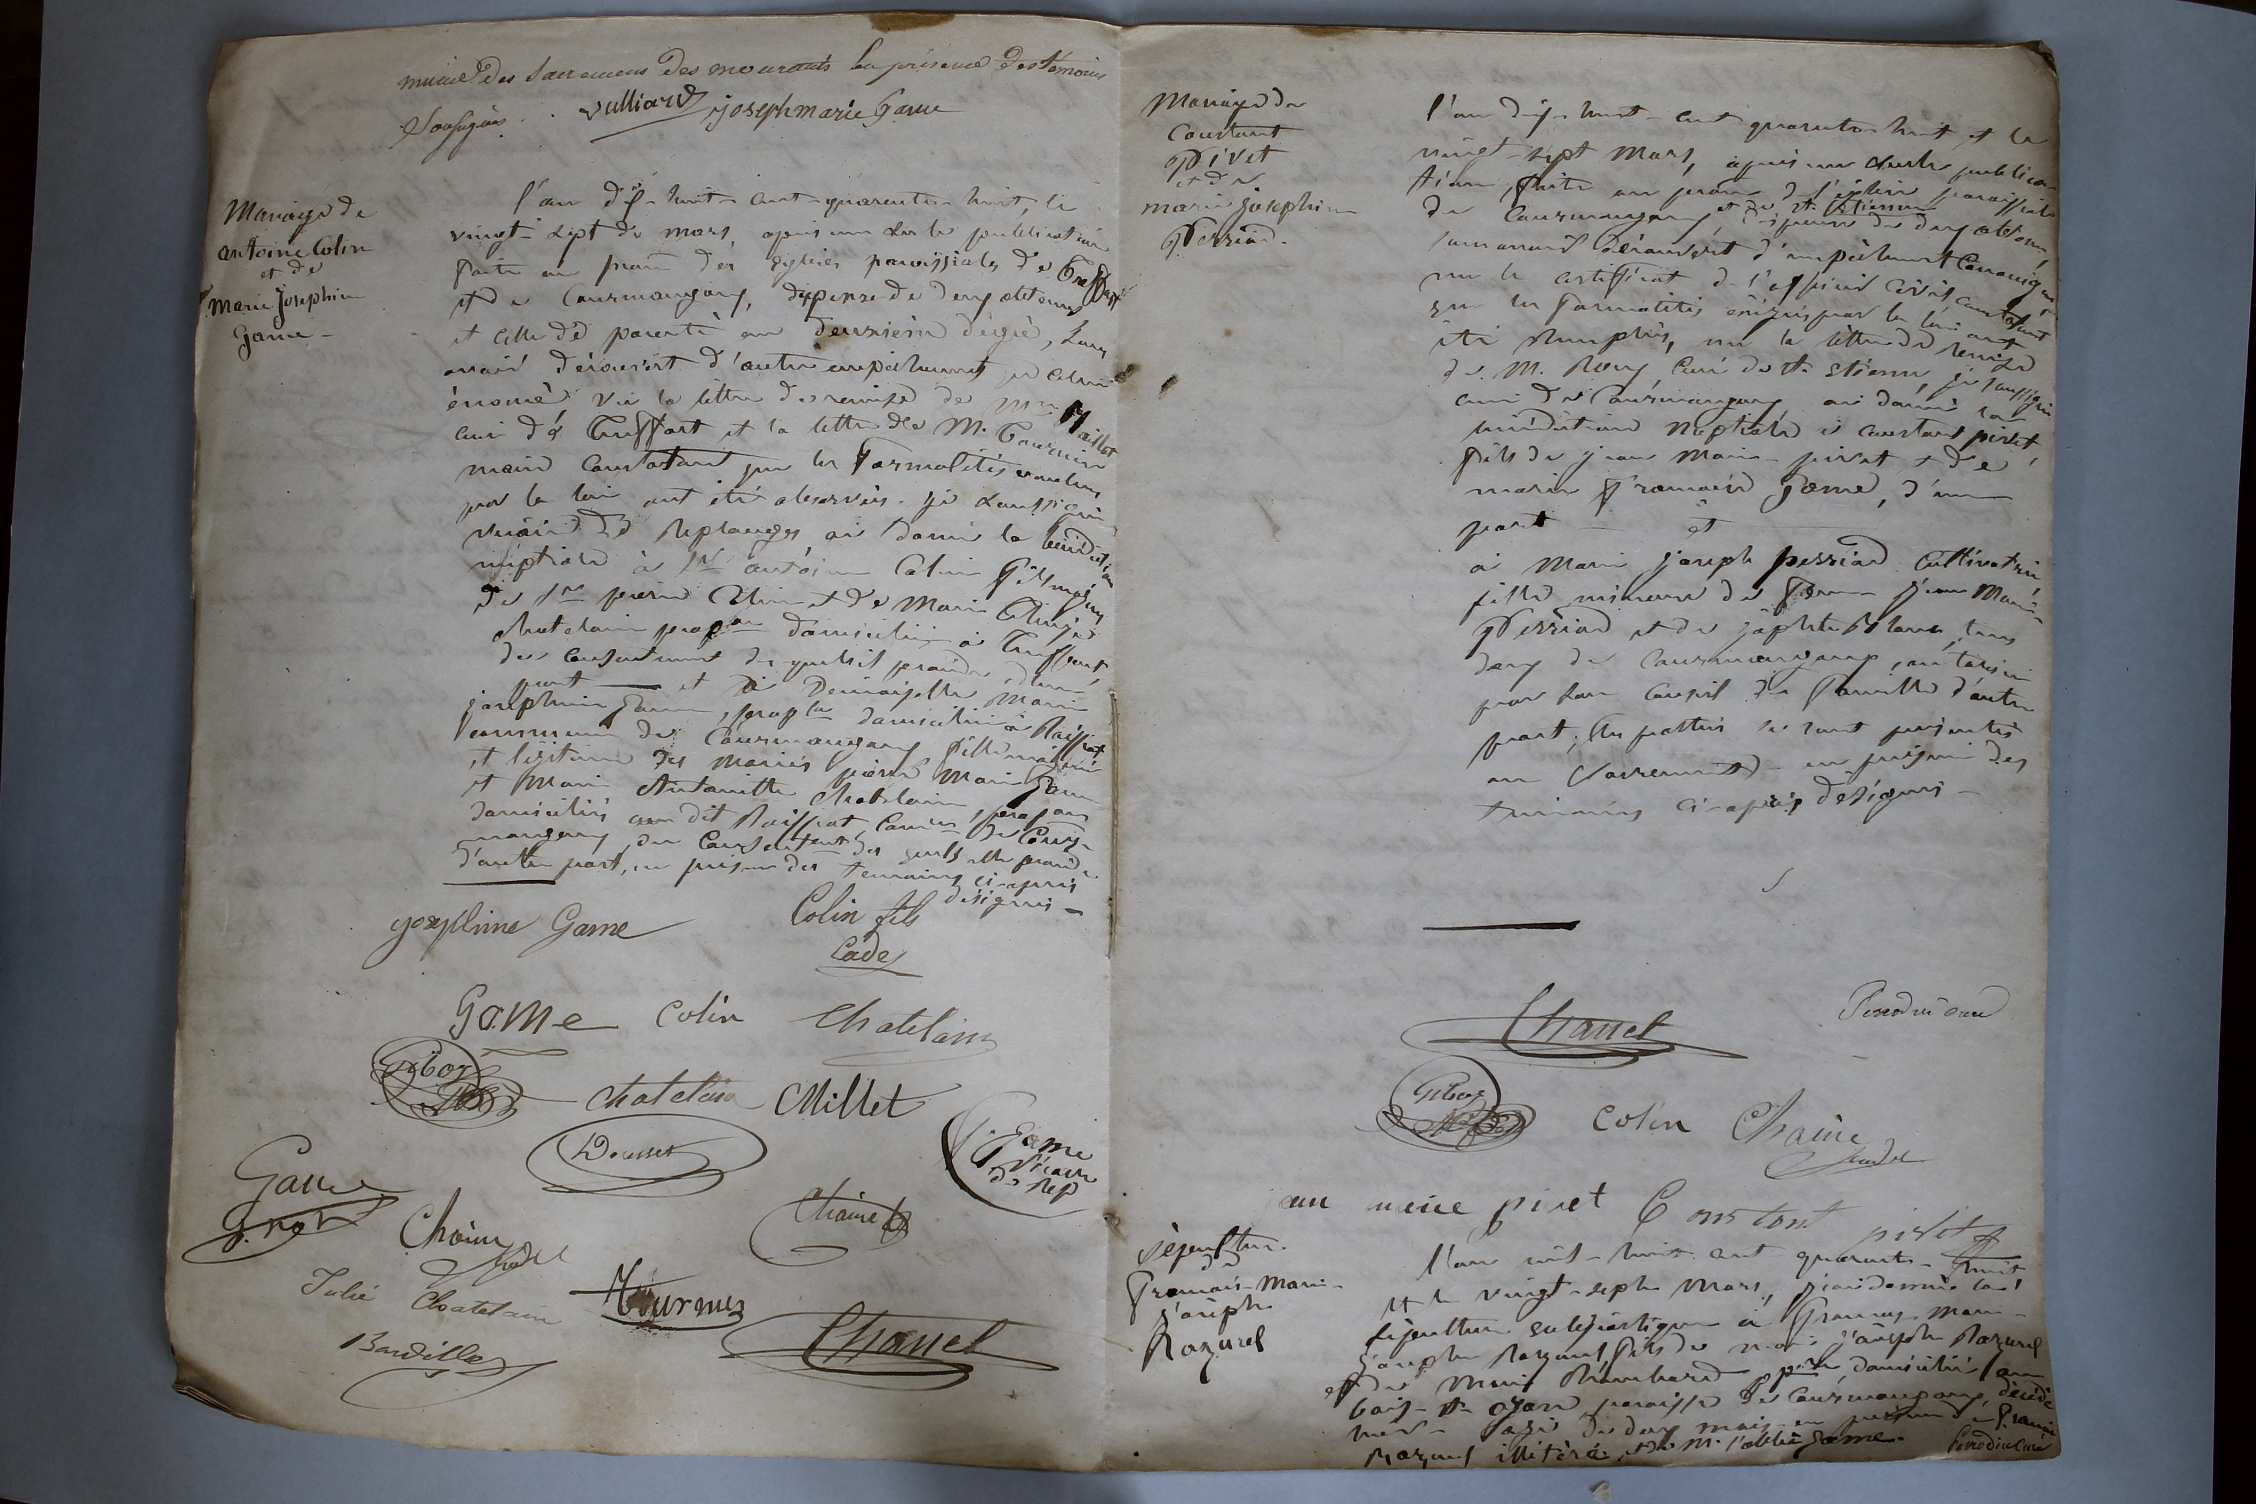 munie des sacremens des mourants en présence des témoins
soussignés. vulliard joseph marie Game
Mariage de
antoine Colin
et de
Marie Josephine
Game -
l'an dix-huit-cent-quarante-huit, le
vingt-sept de mars, après une seule publication
faite au prône des églises paroissiales de Treffort
et de Courmangoux, dispense de deux autres
et celle de parenté au deuxième degré, sans
avoir découvert d'autre empêchement que celui
énoncé vu la lettre de remise de Mr Maillet
curé de Treffort et la lettre de M. Tournier
maire constatant que les formalités voulues
par la loi ont été observées. je soussigné
vicaire de Replonges ai donné la bénédiction
nuptiale à Sr antoine Colin fils majeur
de Sr pierre Colin et de Marie
chatelain prop.re domicilié à Treffort,
du consentement des quels il procède, d'une
part et à Demoiselle Marie
josephine Game, prop.re domiciliée à Roissiat
commune de Courmangoux fille majeure
et légitime des mariés pierre Marie Game
et Marie Antoinette Chatelain, prop.res
domiciliés au dit Roissiat, Comune de Cour-
mangoux, du consentement des quels elle procède
d'autre part, en présence des témoins ci-après
désignés -
josephine Game Colin fils
Cadet
Game Colin Chatelain
chatelain CMillet
Dousset
Game
Vicaire
de Rep
Game
Chaine
Chaine
Julie Chatelain
Tournier
Bardillet
Chanel
Mariage de
Constant
Pivet
et de
marie josephine
Perriad.
l'an dix-huit-cent quarante-huit et le
vingt-sept Mars, après une seule publica-
tion faite au prône de l'église paroissiale
de Courmangoux et de St. Etienne dispense de deux autres,
sans avoir découvert d'empêchement Canonique
vu le certificat de l'officier civil constatant
que les formalités exigées par la loi ont
été remplies, vu la lettre de remise
de M. Roux Curé de St. Etienne, je soussigné
curé de Courmangoux ai donné la
bénédiction nuptiale à constant pivet,
fils de jean Marie pivet et de
marie françoise Game, d'une
part et
à Marie joseph perriad Cultivatrice
fille mineure de jean Marie
Perriad et de tous
deux de Courmangoux, autorisée
par son conseil de famille d'autre
part; les parties se sont présentées
au sacrement en présence des
témoins ci-après désignés -
Chanel
Perrodin curé
Colin Chaine
jean marie pivet Constant pivet
Sépulture
de
François-Marie-
joseph
Razurel
l'an mil-huit-cent quarante-huit
et le vingt-sept Mars, j'ai donné la
sépulture eclésiastique à françois Marie-
joseph Razurel fils de marie joseph Razurel
et de Marie domicilié au
bois-St-oyen paroisse de Courmangoux, décédé
hier âgé de deux mois en présence de françois
Razurel illitéré et de M. l'abbé Game. Perrodin Curé